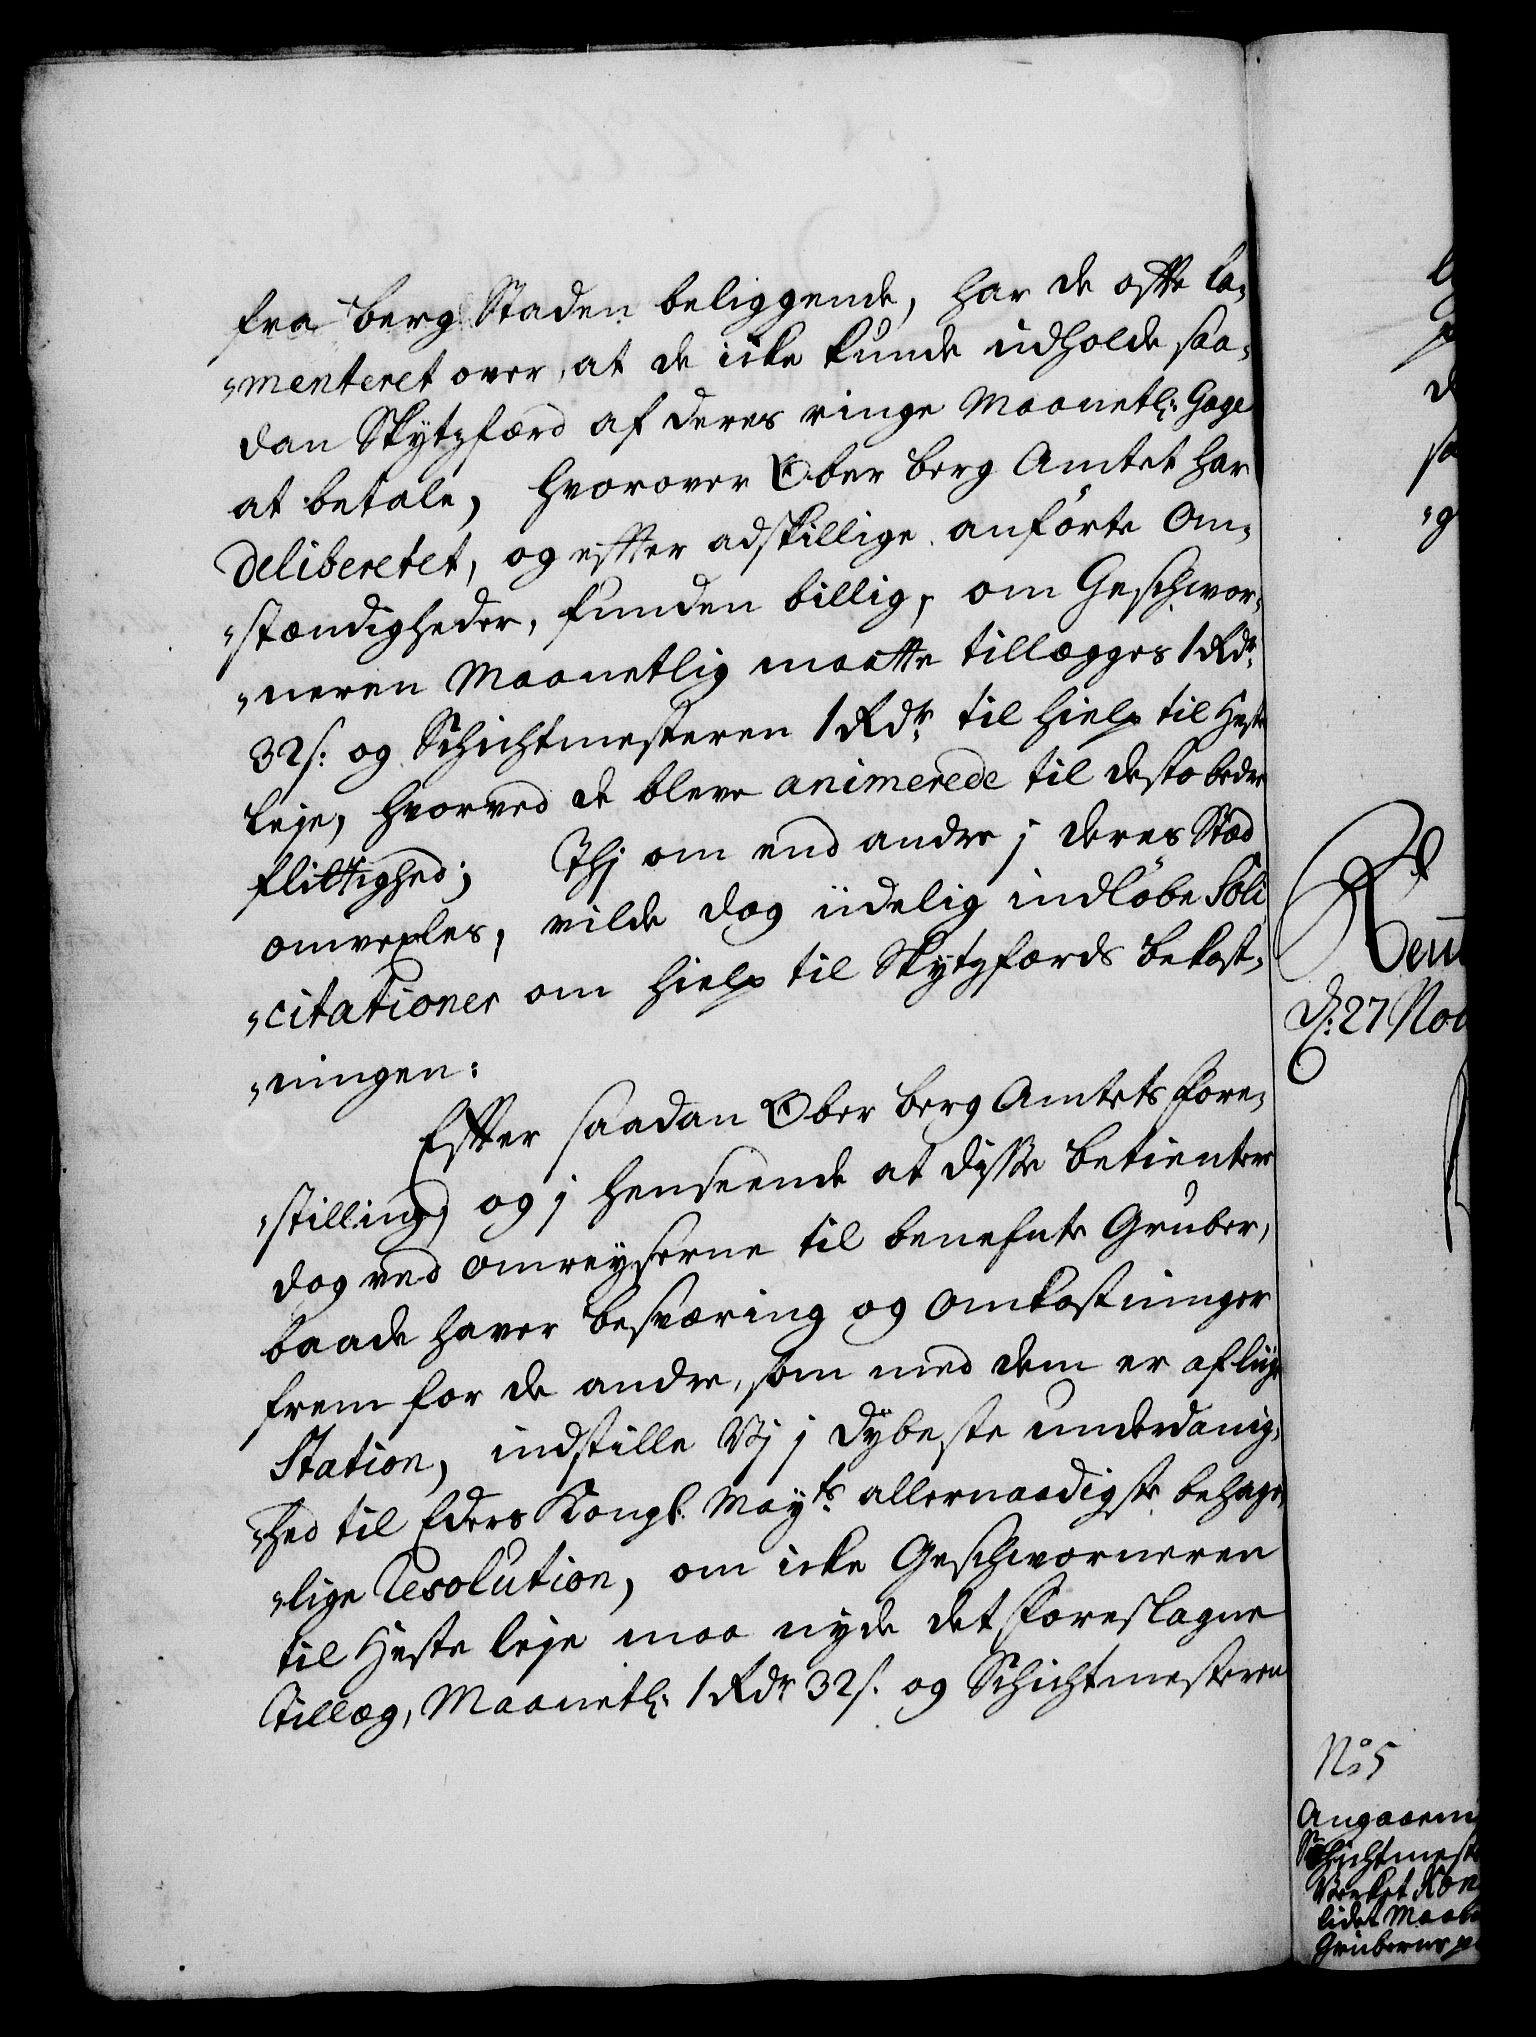 fra Berg Staden beliggende, har de offte la-
"menteret over, at de icke kunde udholde saa-
dan Skytzfærd af deres ringe Maanetl: Gage
at betale, hvorover Ober Berg Amtet har
delibereret, og effter adskillige anførte Om-
"stændigheder, funden billig, om Geschwor-
"neren Maanetlig maatte tillægges 1 Rdr
32 s: og Schichtmesteren 1 Rdr til hielp til Heste
leje, hvorved de bleve animerede til desto bedre
flittighed; Thj om end andre j deres Stæd
omvexles, vilde dog iidelig indløbe Soli
"citationer om hielp til Skytzfærds bekost-
"ningen:
Effter saadan Ober Berg Amtets Fore-
"stilling, og j henseende at disse betientere
dog ved omreyserne til benefnte Gruber,
baade haver besværing og omkostninger
frem for de andre, som med dem er af liige
Station, indstille Vj j dybeste underdanig-
"hed til Eders Kongl: Mayts allernaadigste behage-
"lige Resolution, om icke Geschworneren
til Heste leje maa nyde det foreslagne
Tillæg, Maanetl: 1 Rdr 32 s. og Schichtmesteren
d: 27 Nov
No 5
Angaaen
Schichtmest
Værket Kon
lidet
Gruberne